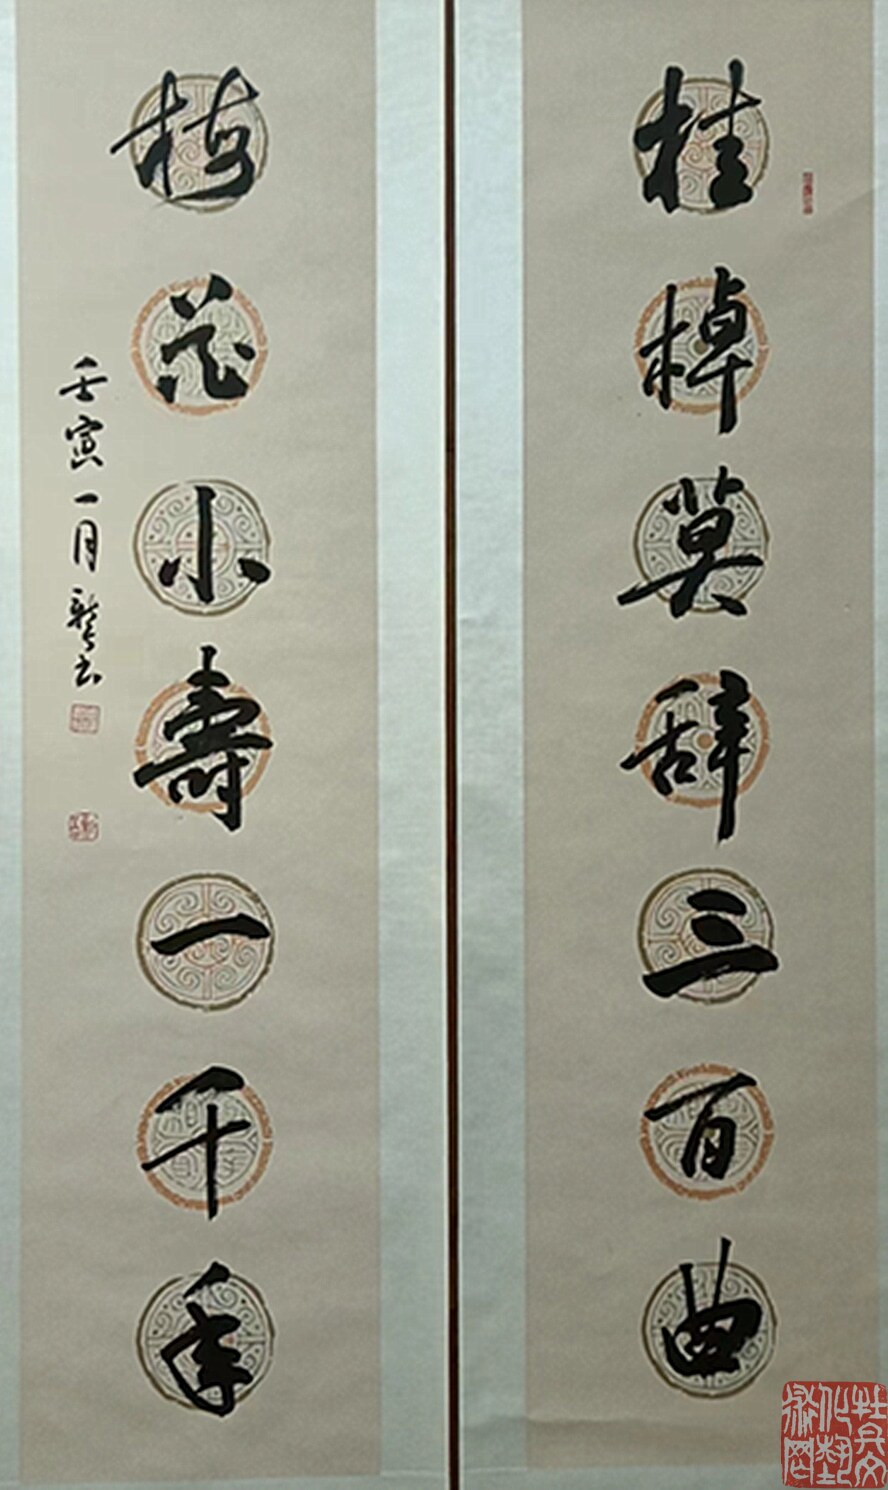 桂棹莫辞三百曲
梅花小寿一千年
壬寅一月